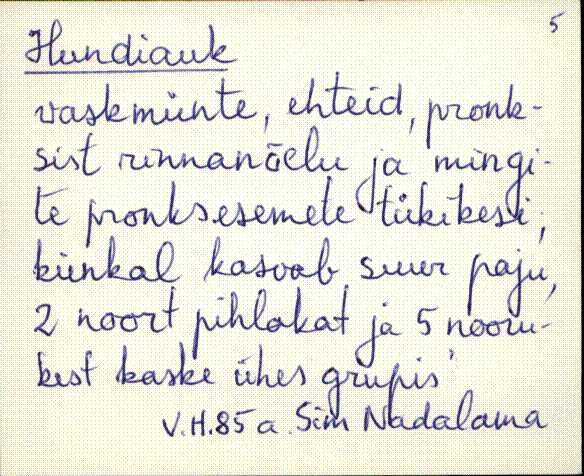 5
Hundiauk
vaskmünte, ehteid, pronk-
sist rinnanõelu ja mingi-
te pronksesemete tükikesi;
künkal kasvab suur paju,
2 noort pihlakat ja 5 nooru-
kest kaske ühes grupis
V.H. 85 a. Siim Nadalama